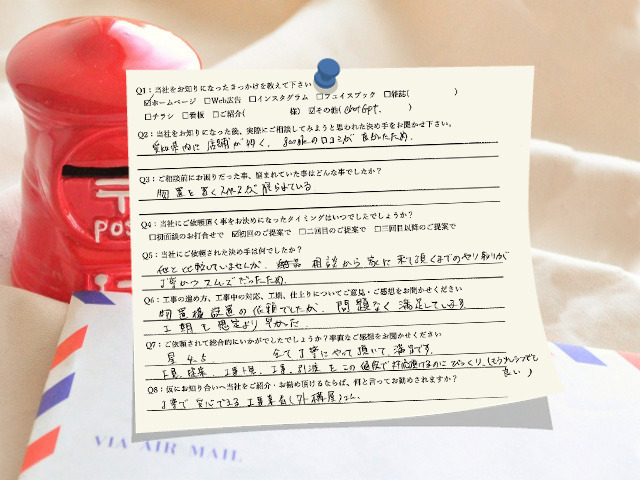 Q1：当社をお知りになったきっかけを教えて下さい
☑ホームページ □Web広告 □インスタグラム □フェイスブック □雑誌( )
□チラシ □看板 □ご紹介( 様) ☑その他(ChatGpt. )
Q2：当社をお知りになった後、実際にご相談してみようと思われた決め手をお聞かせ下さい。
愛知県内に店舗が多く、googleの口コミが良かったため.
Q3：ご相談前にお困りだった事、悩まれていた事はどんな事でしたか？
物置を置くスペースが限られている
Q4：当社にご依頼頂く事をお決めになったタイミングはいつでしたでしょうか？
□初面談のお打合せで ☑初回のご提案で □二回目のご提案で □三回目以降のご提案で
Q5：当社にご依頼された決め手は何でしたか？
他と比較していませんが、相談から家に来て頂くまでのやり取りが
丁寧かつスムーズだったため.
Q6：工事の進め方、工事中の対応、工期、仕上りについてご意見・ご感想をお聞かせください
物置設置の依頼でしたが、問題なく満足しています.
工期も想定より早かった.
Q7：ご依頼されて総合的にいかがでしたでしょうか？率直なご感想をお聞かせください
星 4.5 全て丁寧にやって頂いて、満足です.
この値段で対応頂けるのにびっくり.
良い
Q8：仮にお知り合いへ当社をご紹介・お勧め頂けるならば、何と言ってお勧めされますか？
丁寧で安心できる 外構屋さん.
POS
VIA AIR MAIL